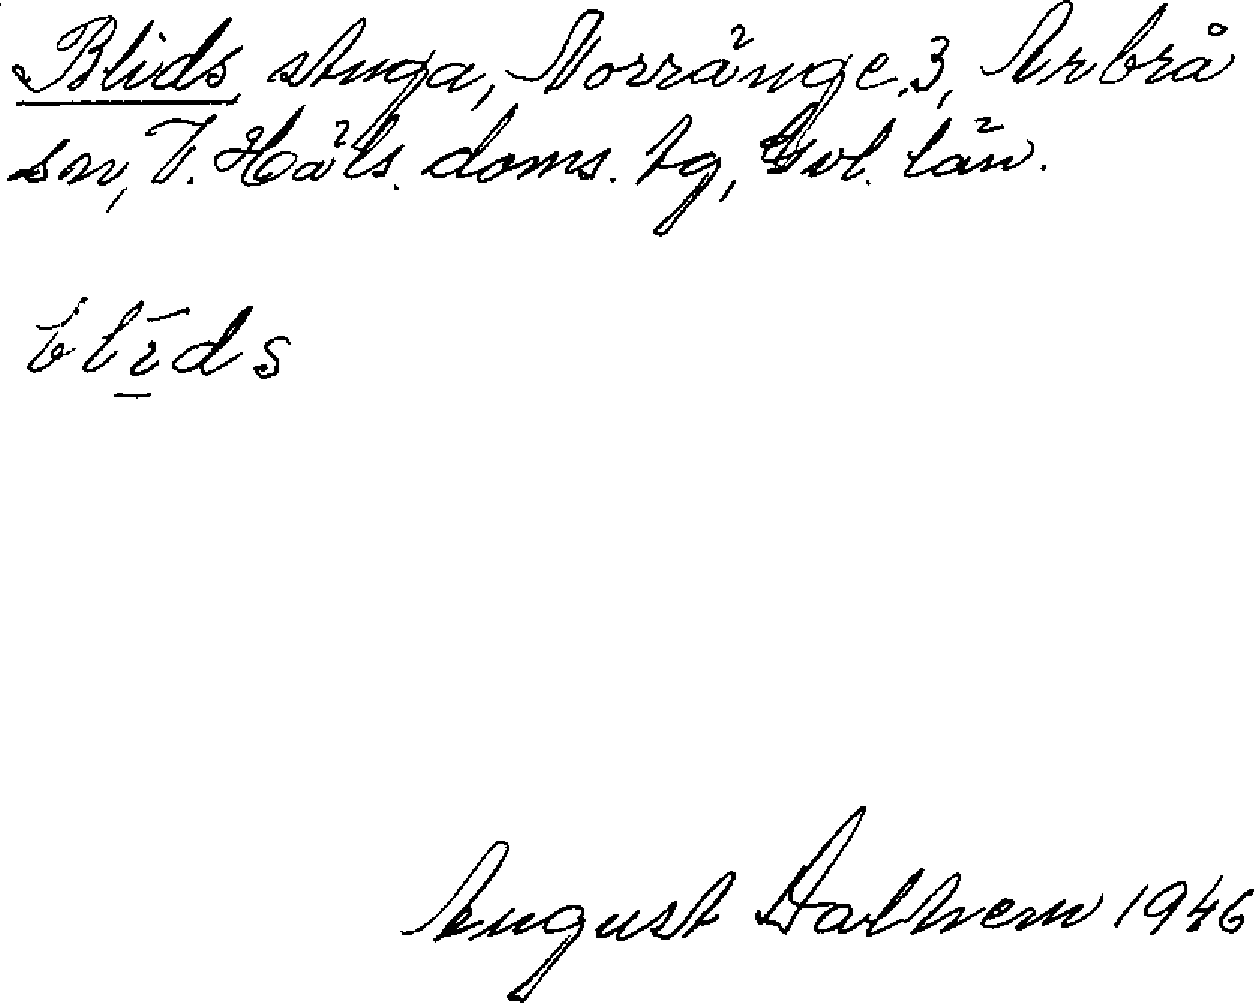 Blids, stuga, Norränge 3, Arbrå
sn, V. Häls. doms. tg, Gvl. län.
blīds
August 1946